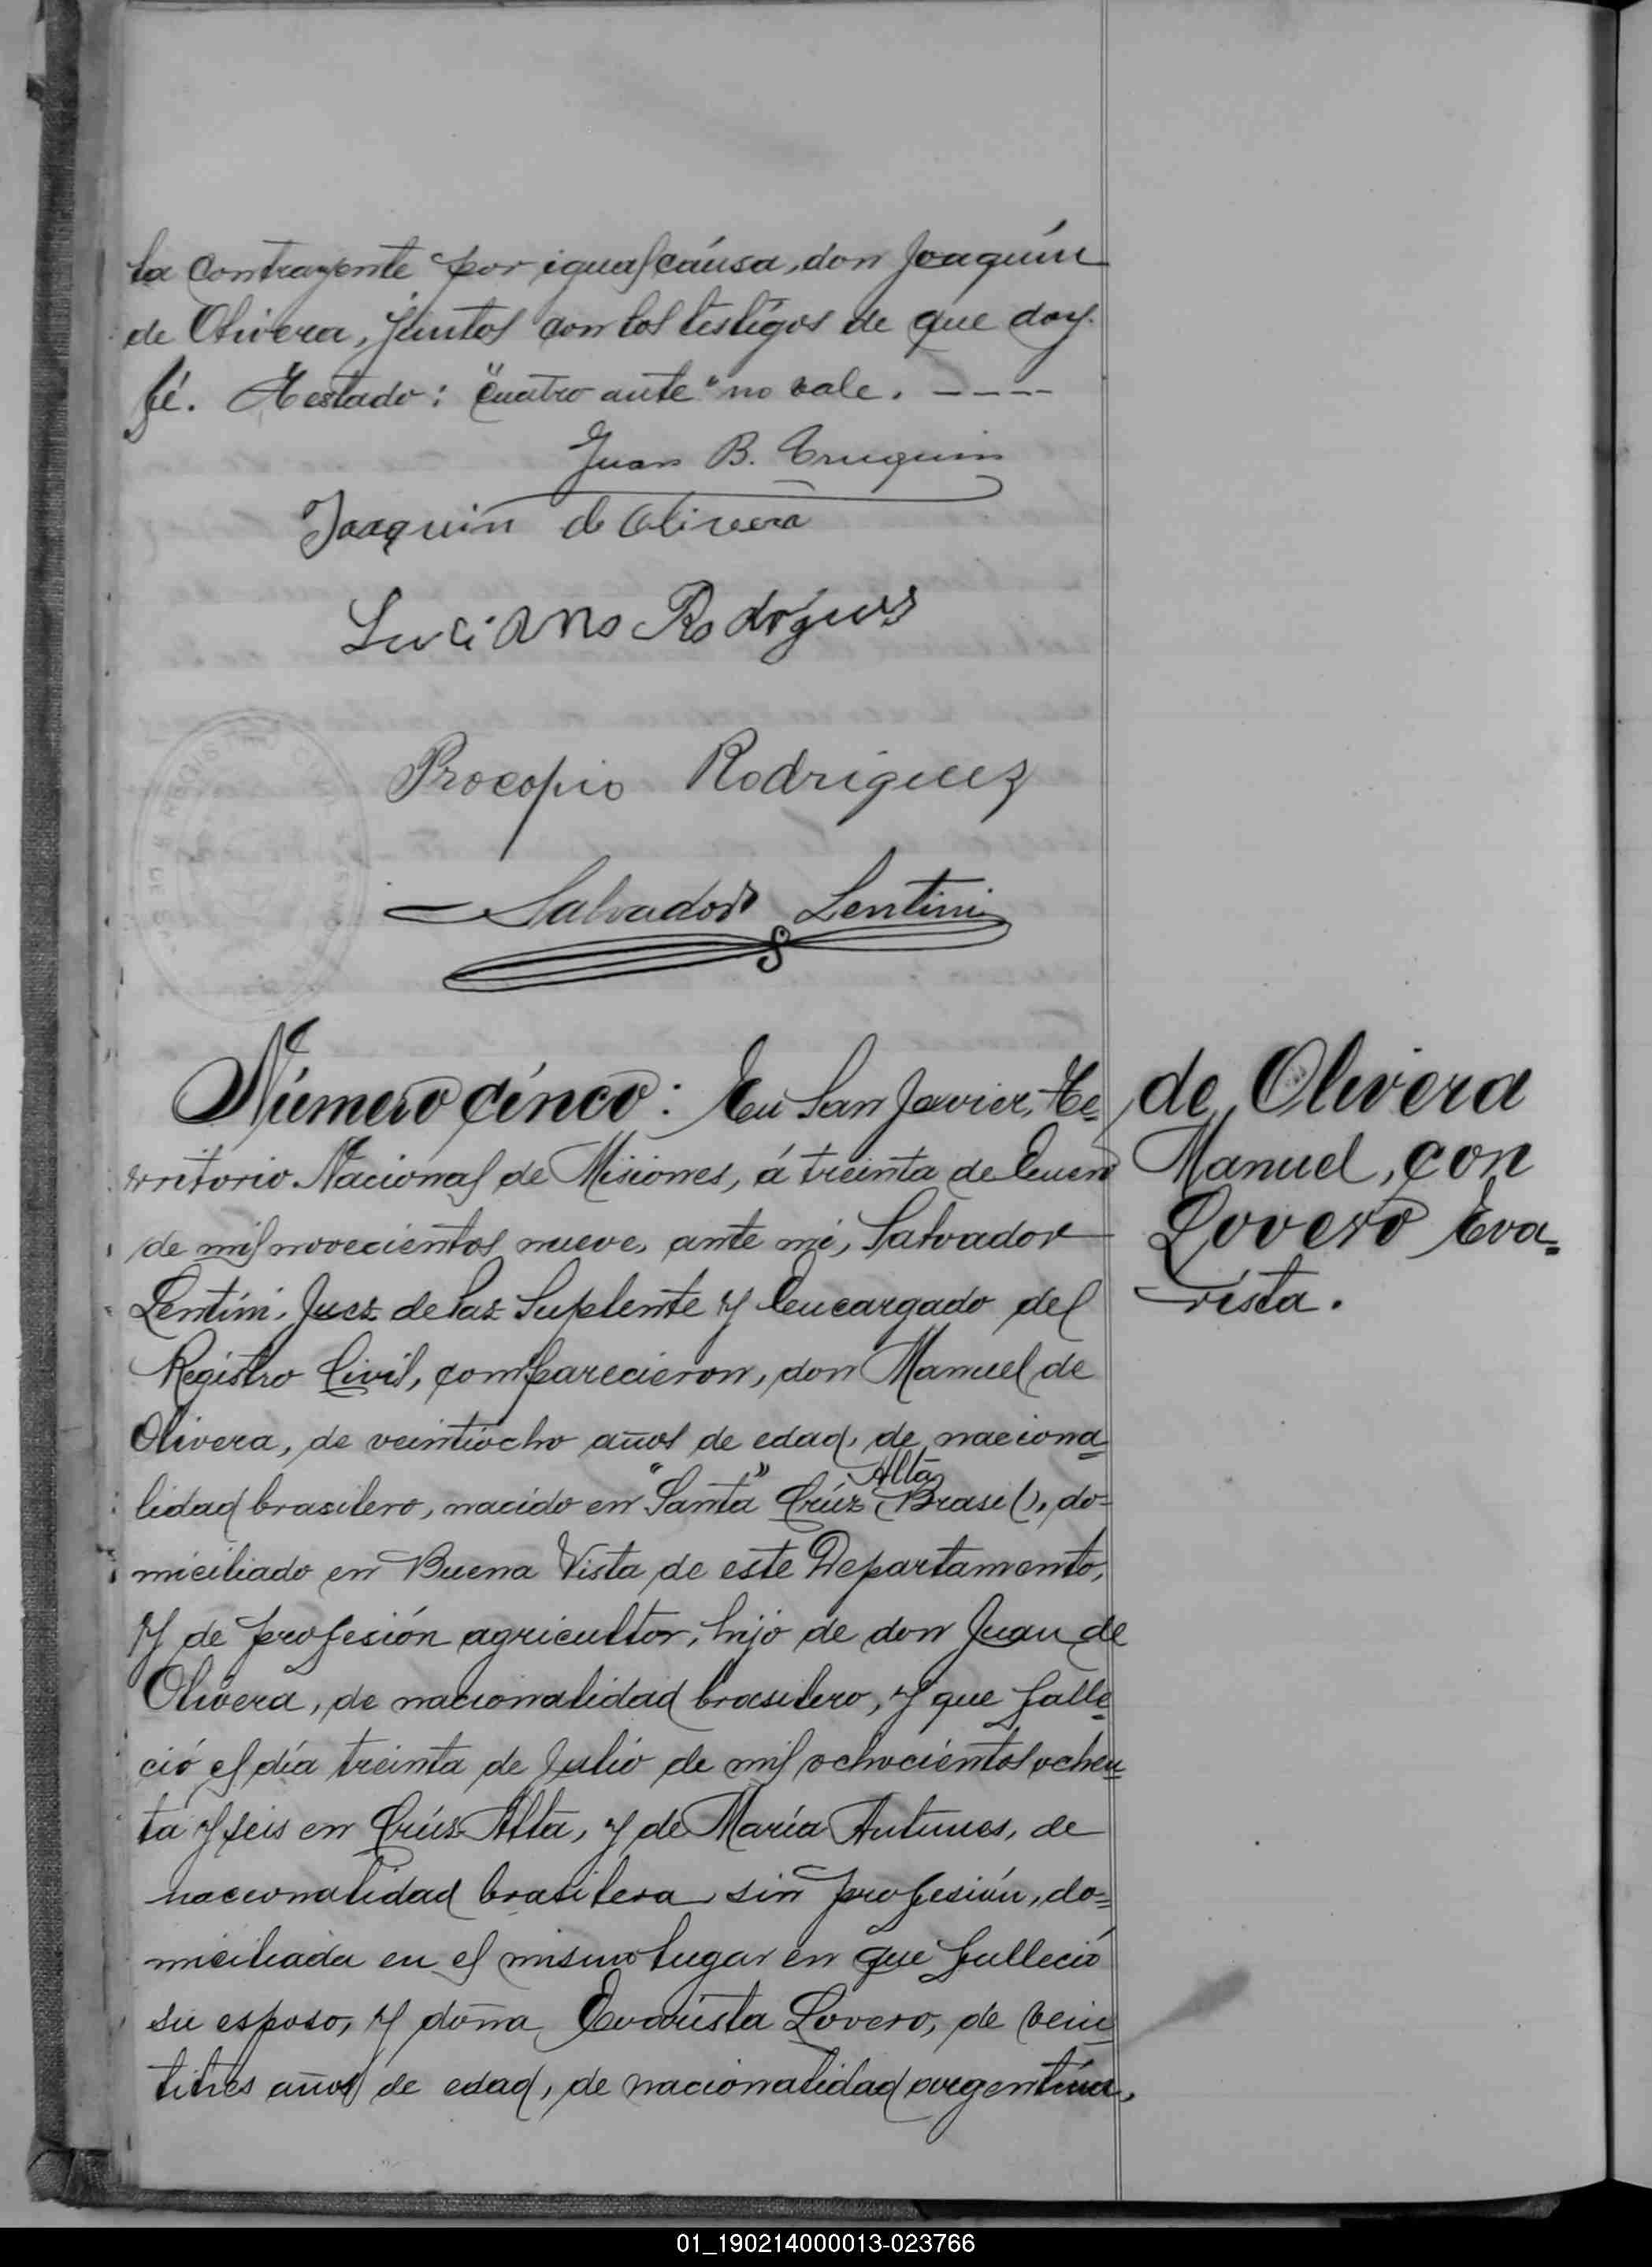 la Contrayente por igual cáusa, don Joaquín
de Olivera, juntos con los testígos de que doy
fé. Testado: "cuatro ante" no vale. ----
Juan B. Truquin
Joaquin de Olivera
Luciano Rodrígues
Procopio Rodriguez
Salvador Lentini
Número cínco: En San Javier, Te=
rritorio Nacional de Misiones, á treinta de Enero
de mil novecientos nueve, ante mí, Salvador
Lentíni, Juez de Paz Suplente y Encargado del
Registro Civil, comparecieron, don Manuel de
Olivera, de veintiocho años de edad, de naciona=
lidad brasilero, nacido en "Santa" Crúz Alta (Brasil), do=
miciliado en Buena Vista de este Departamento,
y de profesión agricultor, hijo de don Juan de
Olivera, de nacionalidad brasilero, y que falle=
ció el día treinta de Julio de mil ochocientos ochen=
ta y seis en Crúz Alta, y de María Antunes, de
nacionalidad brasilera, sin profesión, do=
miciliada en el mismo lugar en que falleció
su esposo, y doña Evarista Lovero, de vein=
titres años de edad, de nacionalidad argentina,
de Olivera
Manuel, con
Lovero Eva=
rista.
01_190214000013-023766